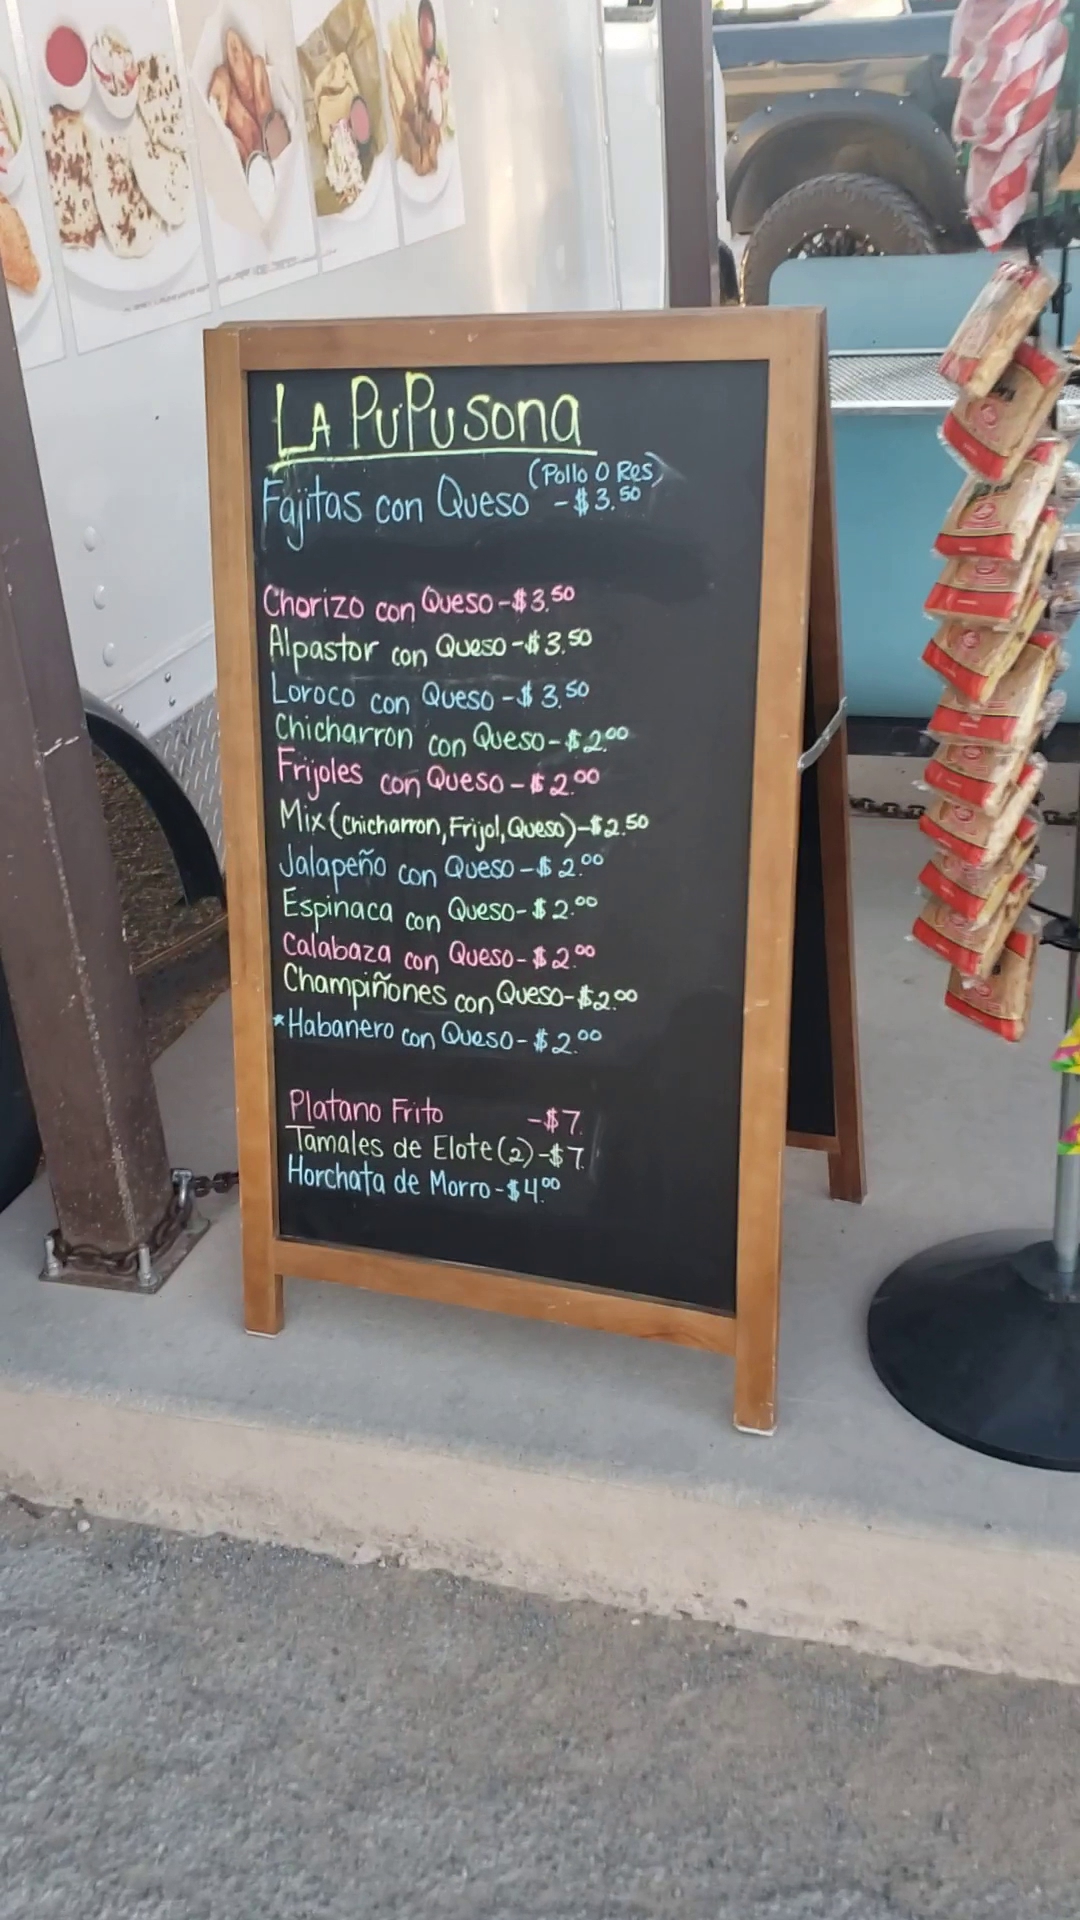 LA PuPusona
(Pollo O Res)
Fajitas con Queso - $3.50
Chorizo con Queso - $3.50
Alpastor con Queso - $3.50
Loroco con Queso - $3.50
Chicharron con Queso - $2.00
Frijoles con Queso - $2.00
Mix (Chicharron, Frijol, Queso) - $2.50
Jalapeño con Queso - $2.00
Espinaca con Queso - $2.00
Calabaza con Queso - $2.00
Champiñones con Queso - $2.00
*Habanero con Queso - $2.00
Platano Frito - $7.
Tamales de Elote (2) - $7.
Horchata de Morro - $4.00